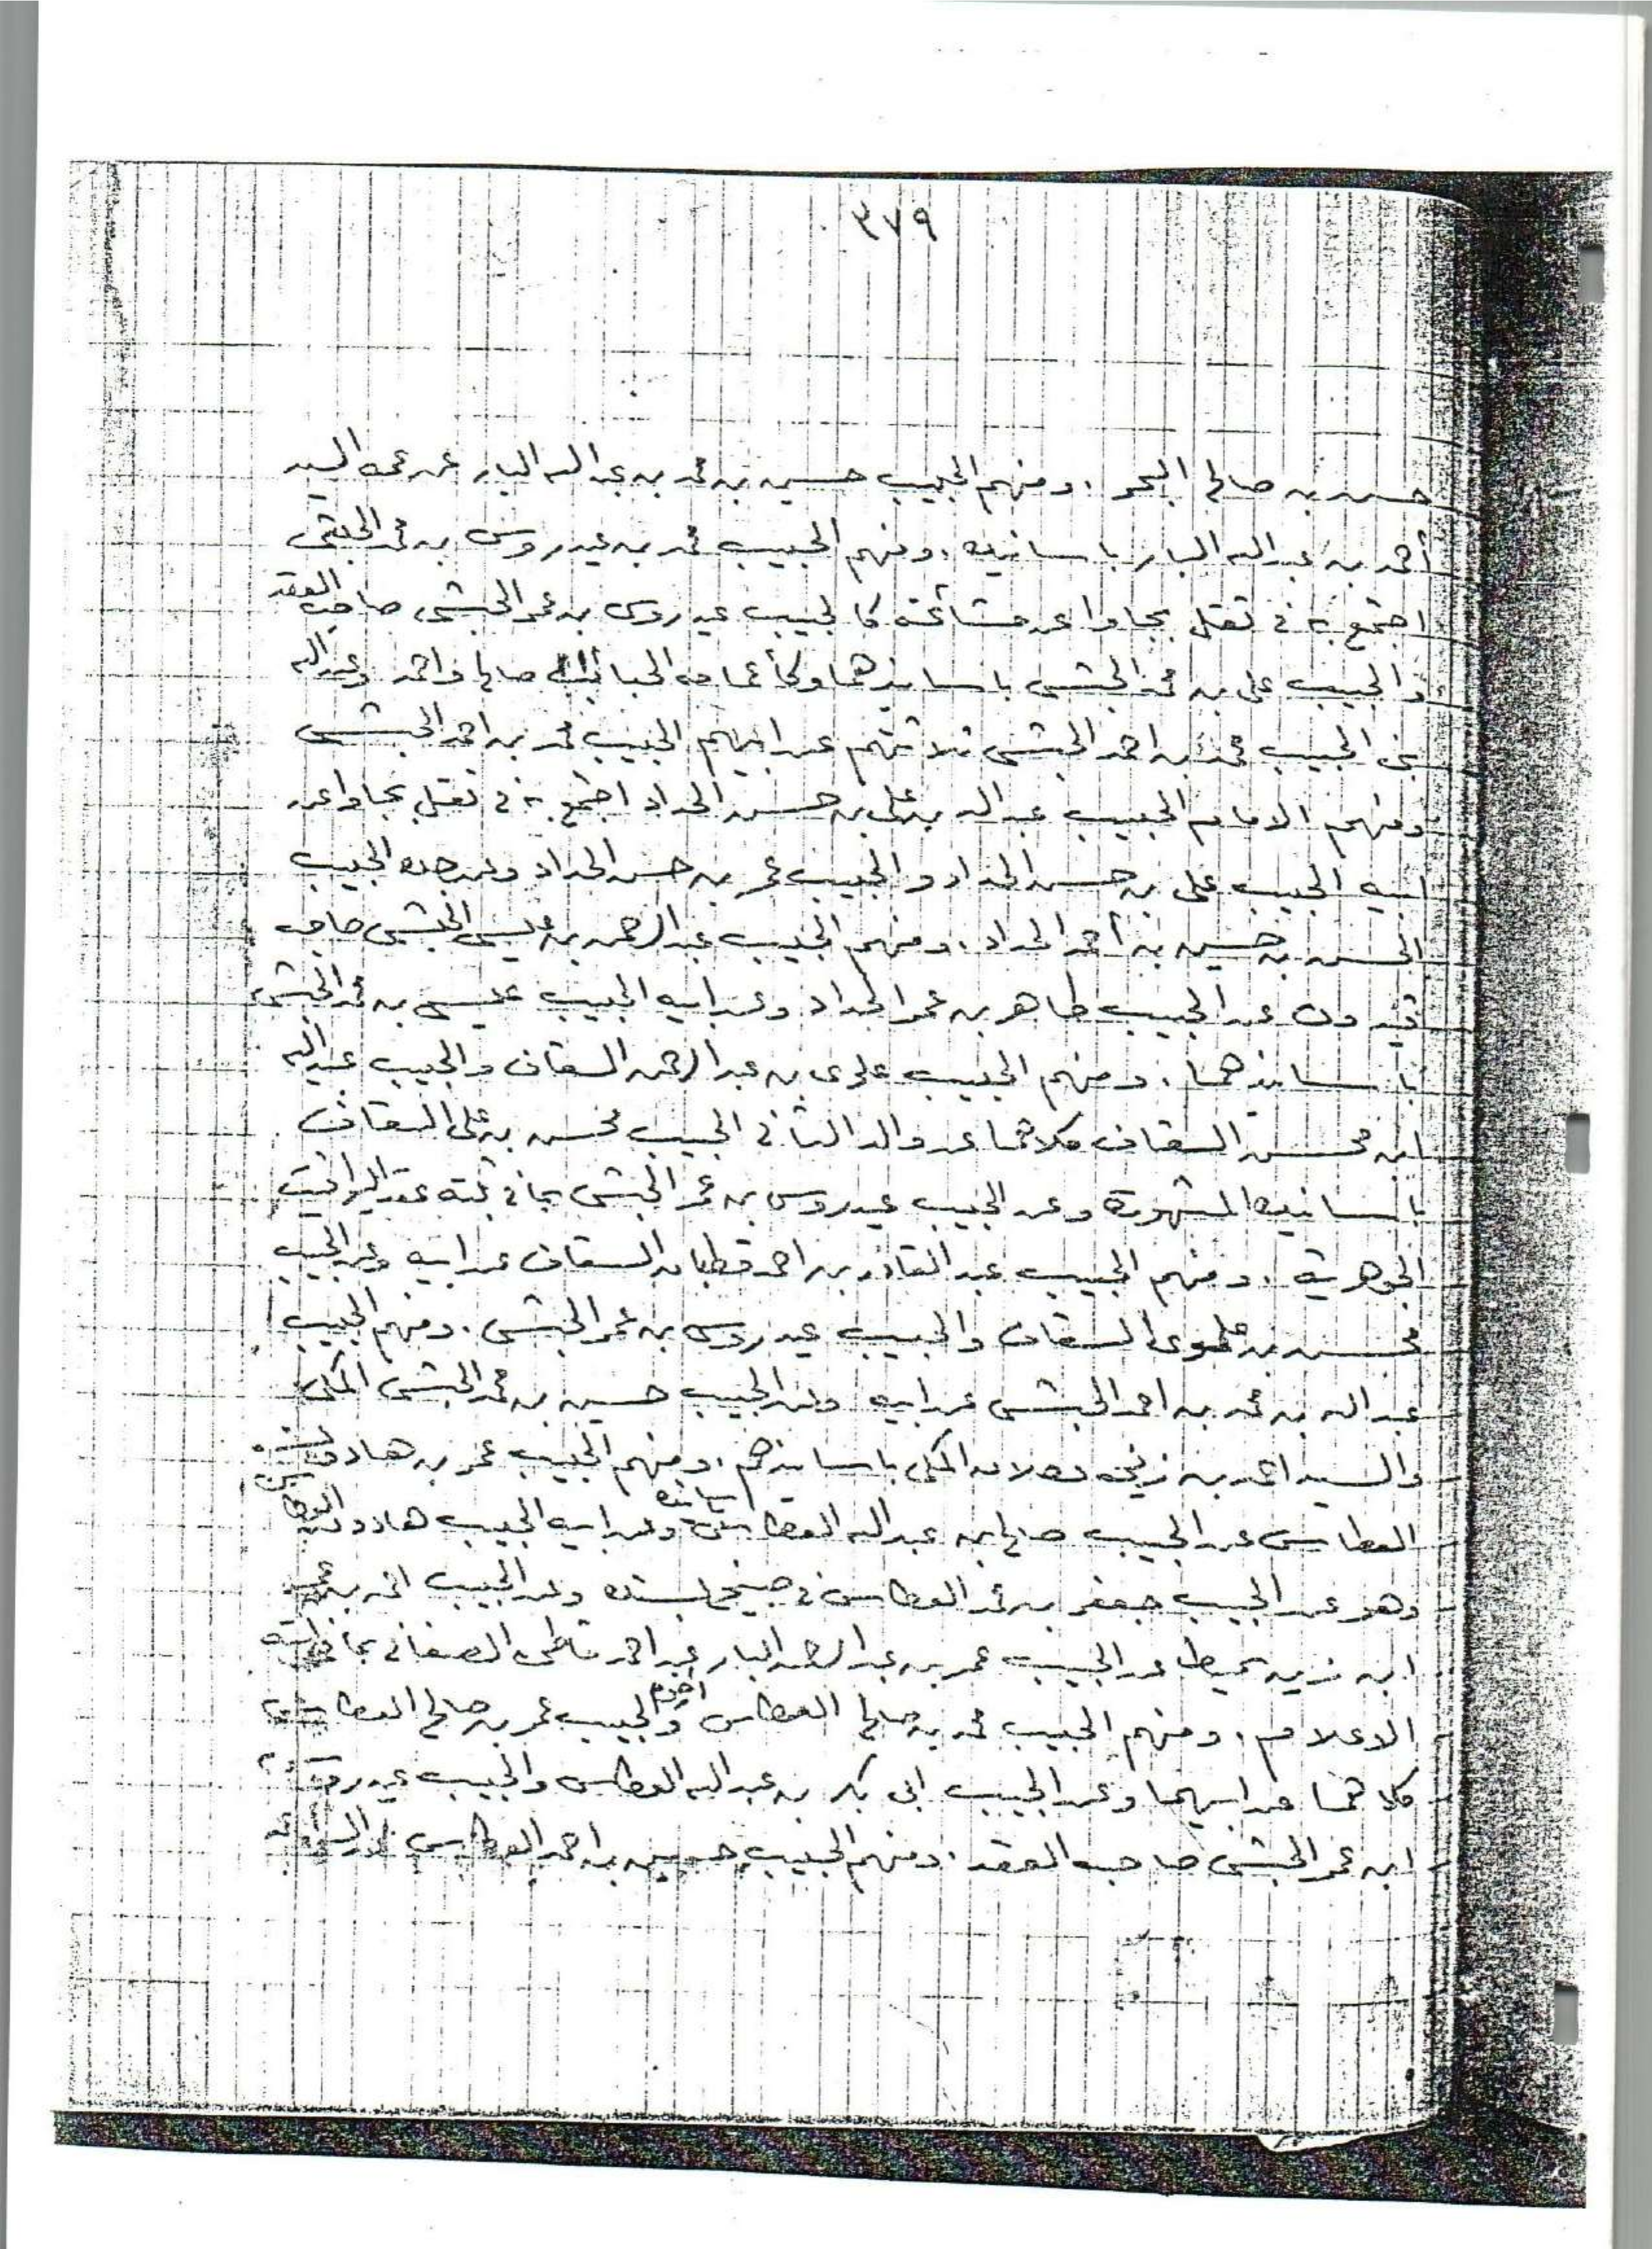 ٣٧٩
حسن بن صالح البحر . ومنهم الحبيب حسين بن محمد بن عبد الله البار عن عمه السيد
أحمد بن عبد الله البار بأسانيده . ومنهم الحبيب محمد بن عيدروس بن محمد الحبشي
اجتمع به في تقل بجاوا عن مشائخه كالحبيب عيدروس بن عمر الحبشي صاحب العقد
والحبيب علي بن محمد الحبشي باسانيدهما وكأعمامه الحبائب صالح واحمد وعبد الله
بني الحبيب محمد بن احمد الحبشي ثلاثتهم عن ابيهم الحبيب محمد بن احمد الحبشي
ومنهم الامام الحبيب عبد الله بن علي بن حسن الحداد اجتمع به في تقل بجاوا عن
ابيه الحبيب علي بن حسن الحداد والحبيب عمر بن حسن الحداد وعن جده الحبيب
الحسن بن حسين بن أحمد الحداد . ومنهم الحبيب عبد الرحمن بن عيسى الحبشي صاحب
قيدون عن الحبيب طاهر بن عمر الحداد وعن ابيه الحبيب عيسى بن محمد الحبشي
باسانيدهما . ومنهم الحبيب علوي بن عبد الرحمن السقاف والحبيب عبد الله
ابن محسن السقاف كلاهما عن والد الثاني الحبيب محسن بن علي السقاف
باسانيده المشهورة وعن الحبيب عيدروس بن عمر الحبشي بما في ثبته عقد اليواقيت
الجوهرية . ومنهم الحبيب عبد القادر بن احمد قطبان السقاف عن ابيه وعن الحبيب
محسن بن علوي السقاف والحبيب عيدروس بن عمر الحبشي . ومنهم الحبيب
عبد الله بن محمد بن احمد الحبشي عن ابيه وعن الحبيب حسين بن محمد الحبشي المكي
والسيد احمد بن زيني دحلان المكي باسانيدهم . ومنهم الحبيب عمر بن هادون
العطاس عن الحبيب صالح بن عبد الله العطاس بسانده وعن ابيه الحبيب هادون العطاس
وهو عن الحبيب جعفر بن محمد العطاس في صبيخ بسنده وعن الحبيب احمد بن عمر
ابن زين بن سميط عن الحبيب عمر بن عبد الرحمن البار عن احمد قاطن الصنعاني بما في
الاعلام . ومنهم الحبيب محمد بن صالح العطاس واخوه الحبيب عمر بن صالح العطاس
كلاهما عن ابيهما وعن الحبيب ابي بكر بن عبد الله العطاس والحبيب عيدروس
ابن عمر الحبشي صاحب العقد . ومنهم الحبيب حسين بن احمد العطاس